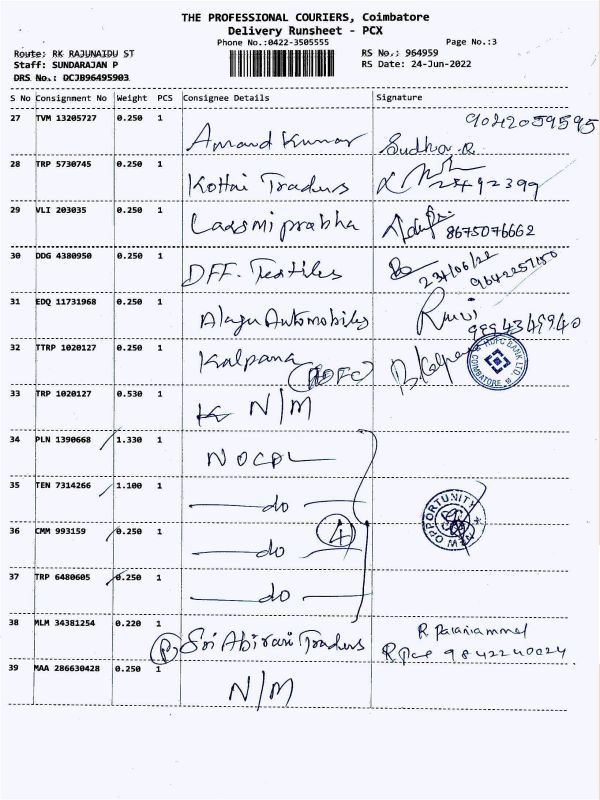 THE PROFESSIONAL COURIERS, Coimbatore
Delivery Runsheet - PCX
Phone No.:0422-3505555
Page No.:3
Route: RK RAJUNAIDU ST
RS No.: 964959
Staff: SUNDARAJAN P
RS Date: 24-Jun-2022
DRS No.: DCJB96495903
S No Consignment No Weight PCS Consignee Details Signature
27 TVM 13205727 0.250 1
9042059595
Anand Kumar Sudha.R
28 TRP 5730745 0.250 1
Kottai Traders
29 VLI 203035 0.250 1
Laxsmi prabha 8675076662
30 DDG 4380950 0.250 1
DFF. Textiles
31 EDQ 11731968 0.250 1
Alagu Automobiles 9994349940
32 TTRP 1020127 0.250 1
Kalpana B.Kalpa
(HDFC)
HDFC BANK LTD.
COIMBATORE
33 TRP 1020127 0.530 1
N/M
34 PLN 1390668 1.330 1
NOCPL
35 TEN 7314266 1.100 1
do
NEW OPPORTUNITY
36 CMM 993159 0.250 1
do 4
37 TRP 6480605 0.250 1
do
38 MLM 34381254 0.220 1
P Sri Abirami Traders R Palaniammal
9842240024
39 MAA 286630428 0.250 1
N/M